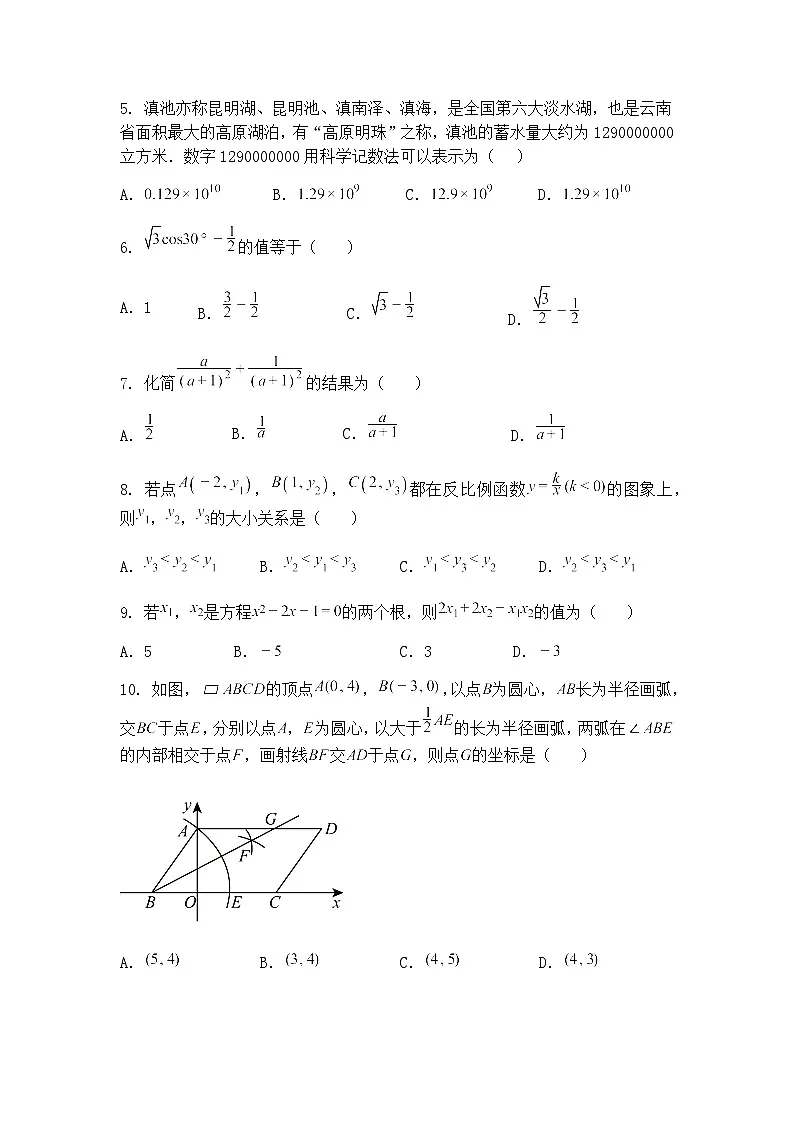 5. 滇池亦称昆明湖、昆明池、滇南泽、滇海，是全国第六大淡水湖，也是云南
省面积最大的高原湖泊，有“高原明珠”之称，滇池的蓄水量大约为 1290000000
立方米．数字 1290000000 用科学记数法可以表示为（ ）
A. 0.129×10¹⁰ B. 1.29×10⁹ C. 12.9×10⁹ D. 1.29×10¹⁰
6. √3cos30°－1/2的值等于（ ）
A. 1 B. 3/2－1/2 C. √3－1/2 D. √3/2－1/2
7. 化简a/(a+1)²+1/(a+1)²的结果为（ ）
A. 1/2 B. 1/a C. a/(a+1) D. 1/(a+1)
8. 若点A(－2, y₁)，B(1, y₂)，C(2, y₃)都在反比例函数y=k/x(k<0)的图象上，
则y₁，y₂，y₃的大小关系是（ ）
A. y₃<y₂<y₁ B. y₂<y₁<y₃ C. y₁<y₃<y₂ D. y₂<y₃<y₁
9. 若x₁，x₂是方程x²－2x－1=0的两个根，则2x₁+2x₂－x₁x₂的值为（ ）
A. 5 B. －5 C. 3 D. －3
10. 如图，▱ABCD的顶点A(0,4)，B(－3,0)，以点B为圆心，AB长为半径画弧，
交BC于点E，分别以点A，E为圆心，以大于1/2AE的长为半径画弧，两弧在∠ABE
的内部相交于点F，画射线BF交AD于点G，则点G的坐标是（ ）
y
A G D
F
B O E C x
A. (5,4) B. (3,4) C. (4,5) D. (4,3)